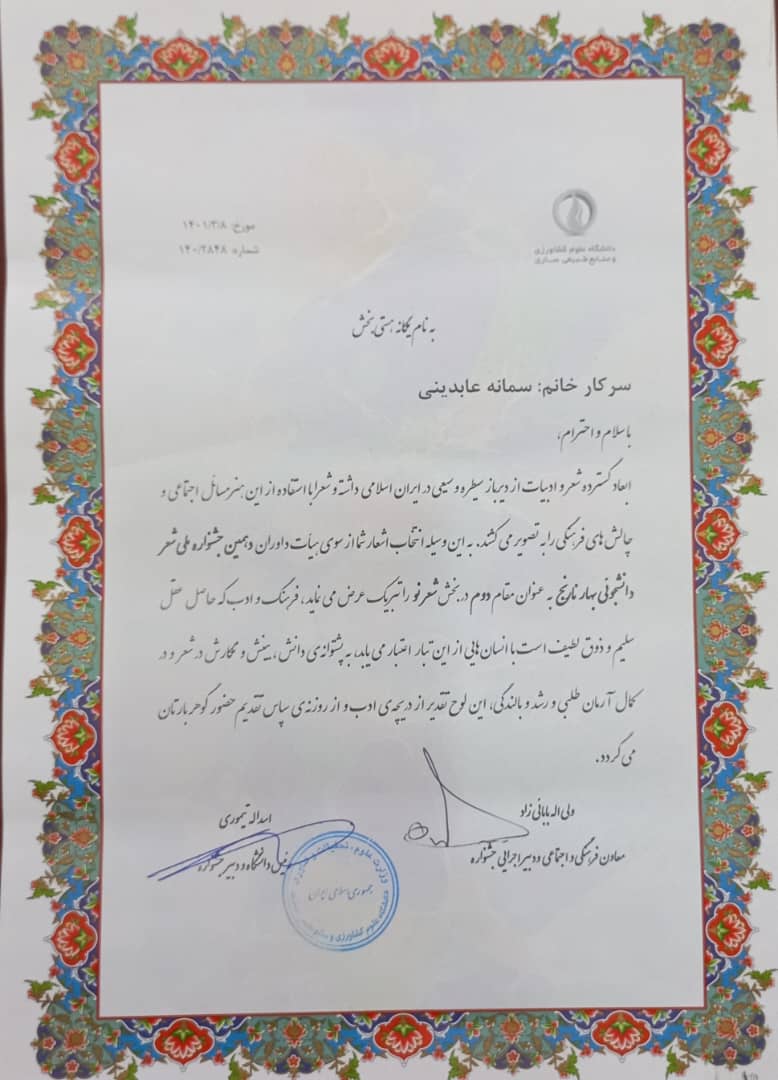 دانشگاه علوم کشاورزی
و منابع طبیعی ساری
مورخ: ۱۴۰۱/۳/۸
شماره: ۱۴۰/۲۸۴۸
به نام یگانه هستی بخش
سرکار خانم: سمانه عابدینی
با سلام و احترام،
ابعاد گسترده شعر و ادبیات از دیرباز سیطره وسیعی در ایران اسلامی داشته و شعرا با استفاده از این هنر مسائل اجتماعی و
چالش های فرهنگی را به تصویر می کشند. به این وسیله انتخاب اشعار شما از سوی هیأت داوران دهمین جشنواره ملی شعر
دانشجوئی بهار نارنج به عنوان مقام دوم در بخش شعر نو را تبریک عرض می نماید، فرهنگ و ادب که حاصل عقل
سلیم و ذوق لطیف است با انسان هایی از این تبار اعتبار می یابد، به پشتوانه ی دانش، بینش و نگارش در شعر و در
کمال آرمان طلبی و رشد و بالندگی، این لوح تقدیر از دریچه ی ادب و از روزنه ی سپاس تقدیم حضور گوهربارتان
می گردد.
ولی اله بابائی زاد
معاون فرهنگی و اجتماعی و دبیر اجرایی جشنواره
اسداله تیموری
دانشگاه و دبیر جشنواره
وزارت علوم، تحقیقات و فناوری
جمهوری اسلامی ایران
دانشگاه علوم کشاورزی و منابع